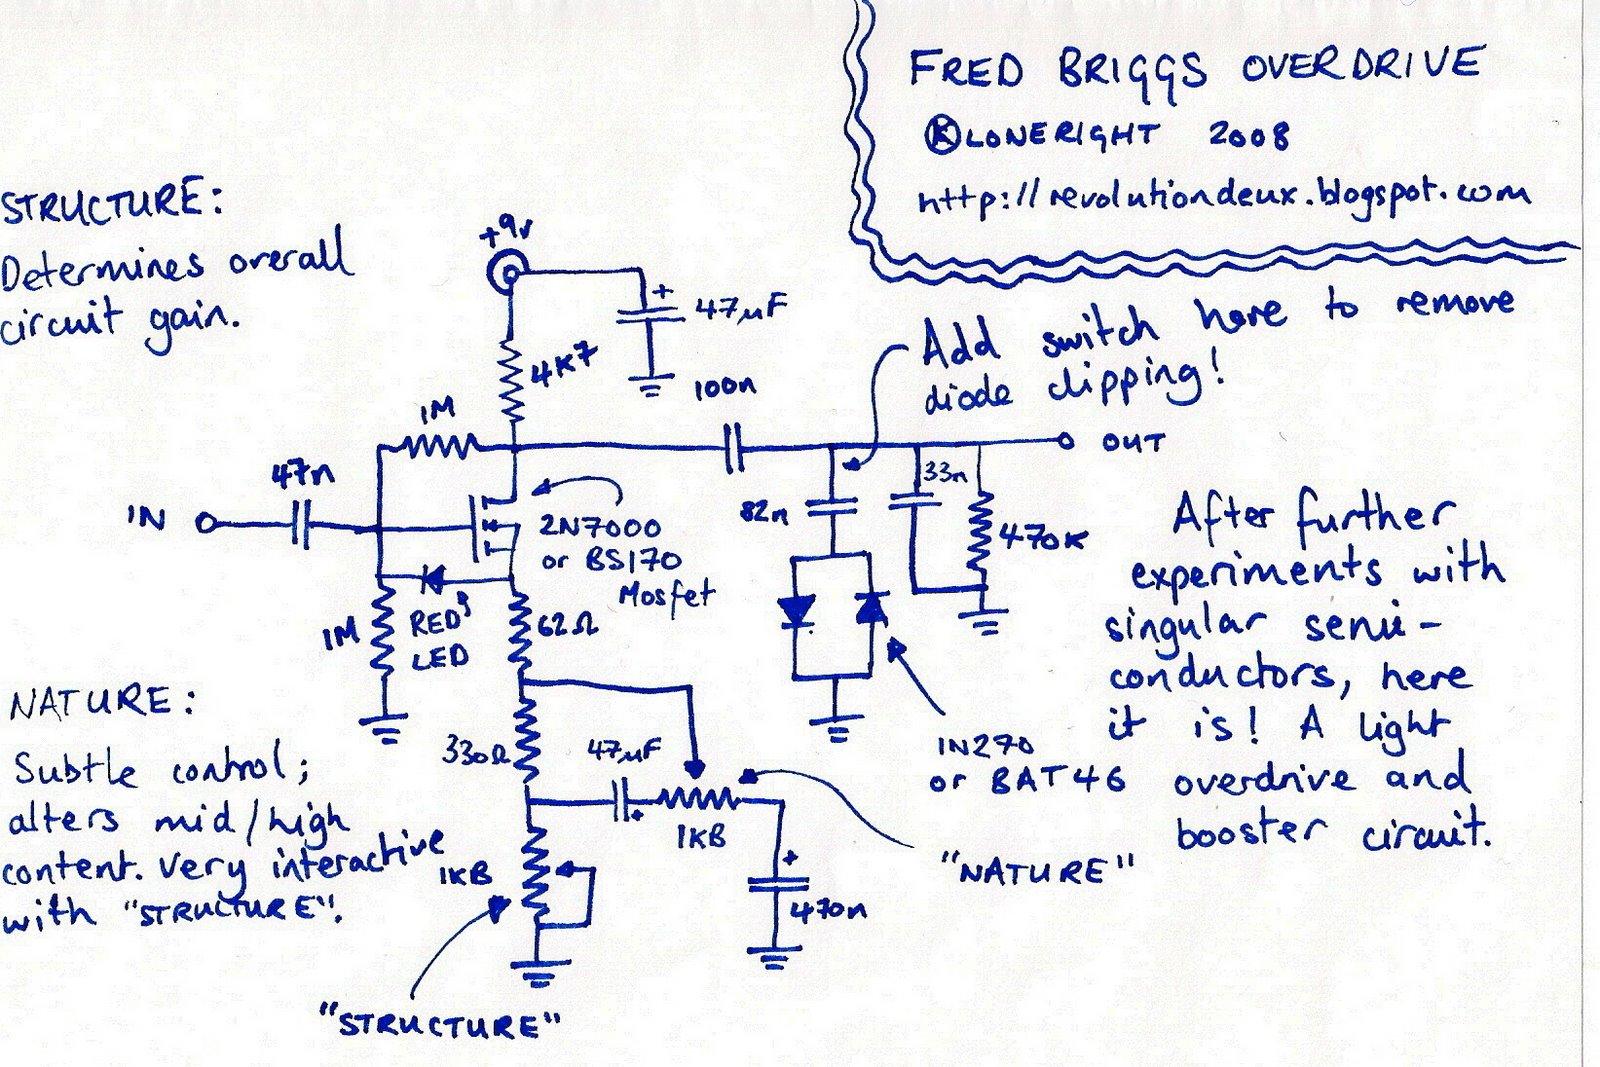 FRED BRIGGS OVERDRIVE
ⓀLONERIGHT 2008
http://revolutiondeux.blogspot.com
STRUCTURE:
Determines overall
circuit gain.
+9v
+
47µF
4K7
100n
1M
Add switch here to remove
diode clipping!
OUT
47n
IN
33n
82n
470K
2N7000
or BS170
Mosfet
1M
RED
LED
62Ω
After further
experiments with
singular semi-
conductors, here
it is! A light
overdrive and
booster circuit.
1N270
or BAT46
NATURE:
Subtle control;
alters mid/high
content. Very interactive
with "STRUCTURE".
330Ω
47µF
+
1KB
"NATURE"
1KB
+
470n
"STRUCTURE"